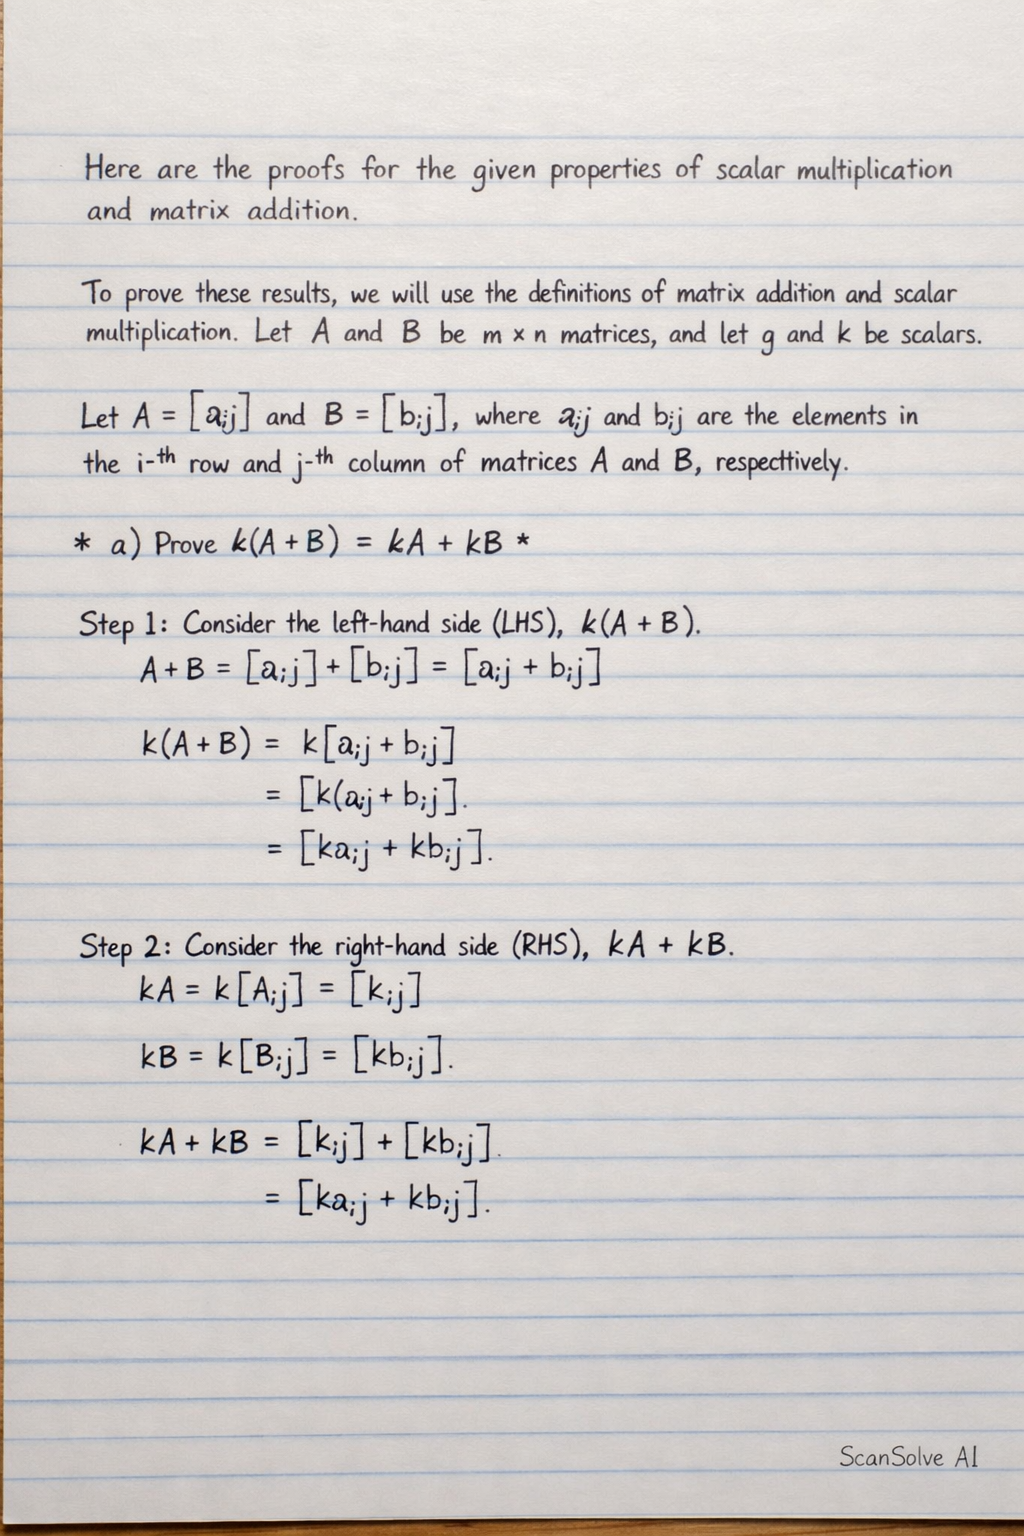 Here are the proofs for the given properties of scalar multiplication
and matrix addition.
To prove these results, we will use the definitions of matrix addition and scalar
multiplication. Let A and B be m × n matrices, and let g and k be scalars.
Let A = [aij] and B = [bij], where aij and bij are the elements in
the i-th row and j-th column of matrices A and B, respecttively.
* a) Prove k(A + B) = kA + kB *
Step 1: Consider the left-hand side (LHS), k(A + B).
A + B = [aij] + [bij] = [aij + bij]
k(A + B) = k[aij + bij]
= [k(aij + bij].
= [kaij + kbij].
Step 2: Consider the right-hand side (RHS), kA + kB.
kA = k[Aij] = [kij]
kB = k[Bij] = [kbij].
kA + kB = [kij] + [kbij].
= [kaij + kbij].
ScanSolve AI